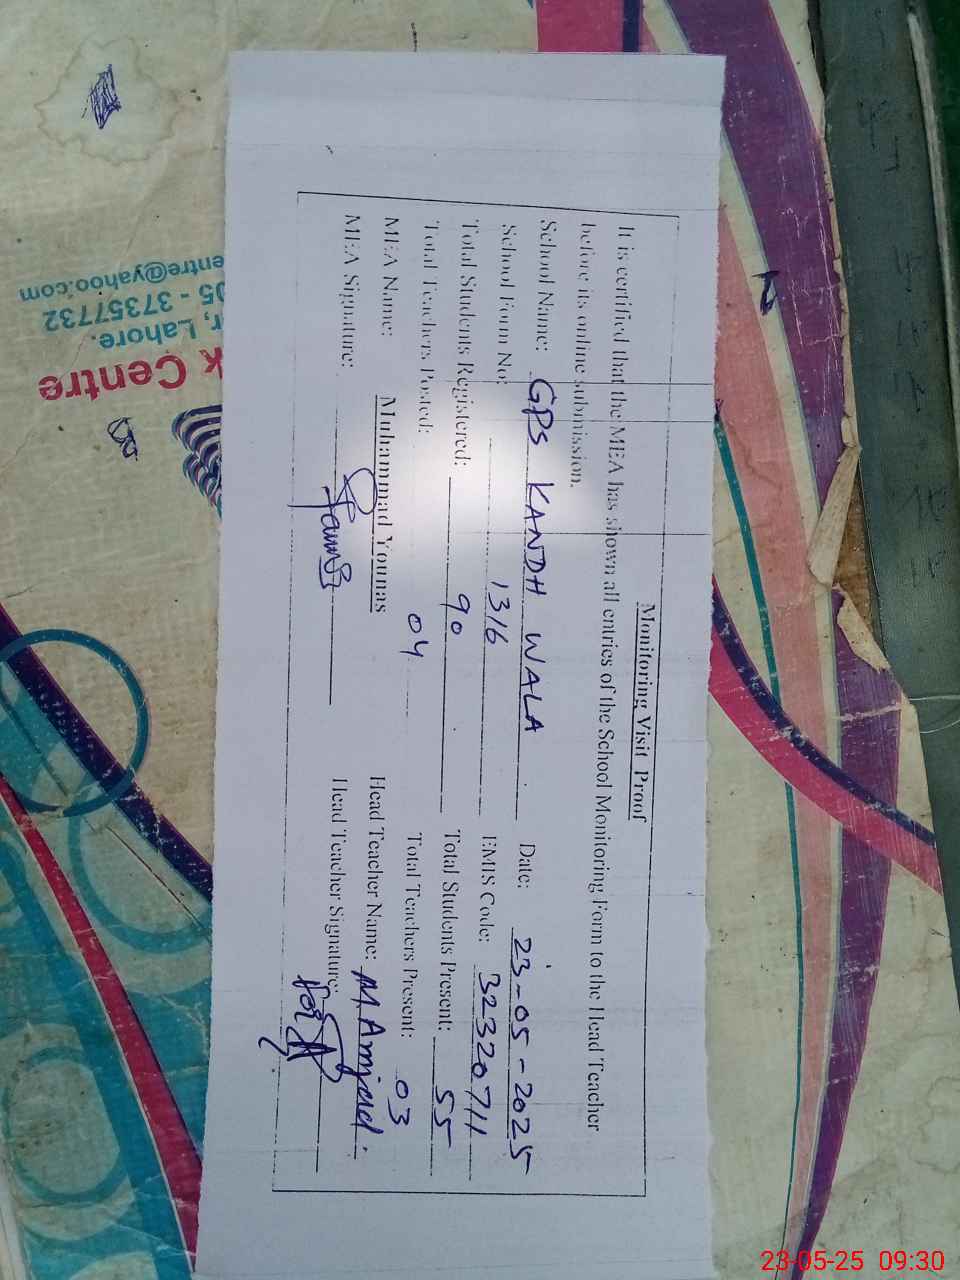 Monitoring Visit Proof
It is certified that the MEA has shown all entries of the School Monitoring Form to the Head Teacher
before its online submission.
School Name: GPS KANDH WALA Date: 23-05-2025
School Form No: 1316 EMIS Code: 32320711
Total Students Registered: 90 Total Students Present: 55
Total Teachers Posted: 04 Total Teachers Present: 03
MEA Name: Muhammad Younas Head Teacher Name: M Amjad.
MEA Signature: Head Teacher Signature:
k Centre
r, Lahore.
05 - 37357732
entre@yahoo.com
23-05-25 09:30